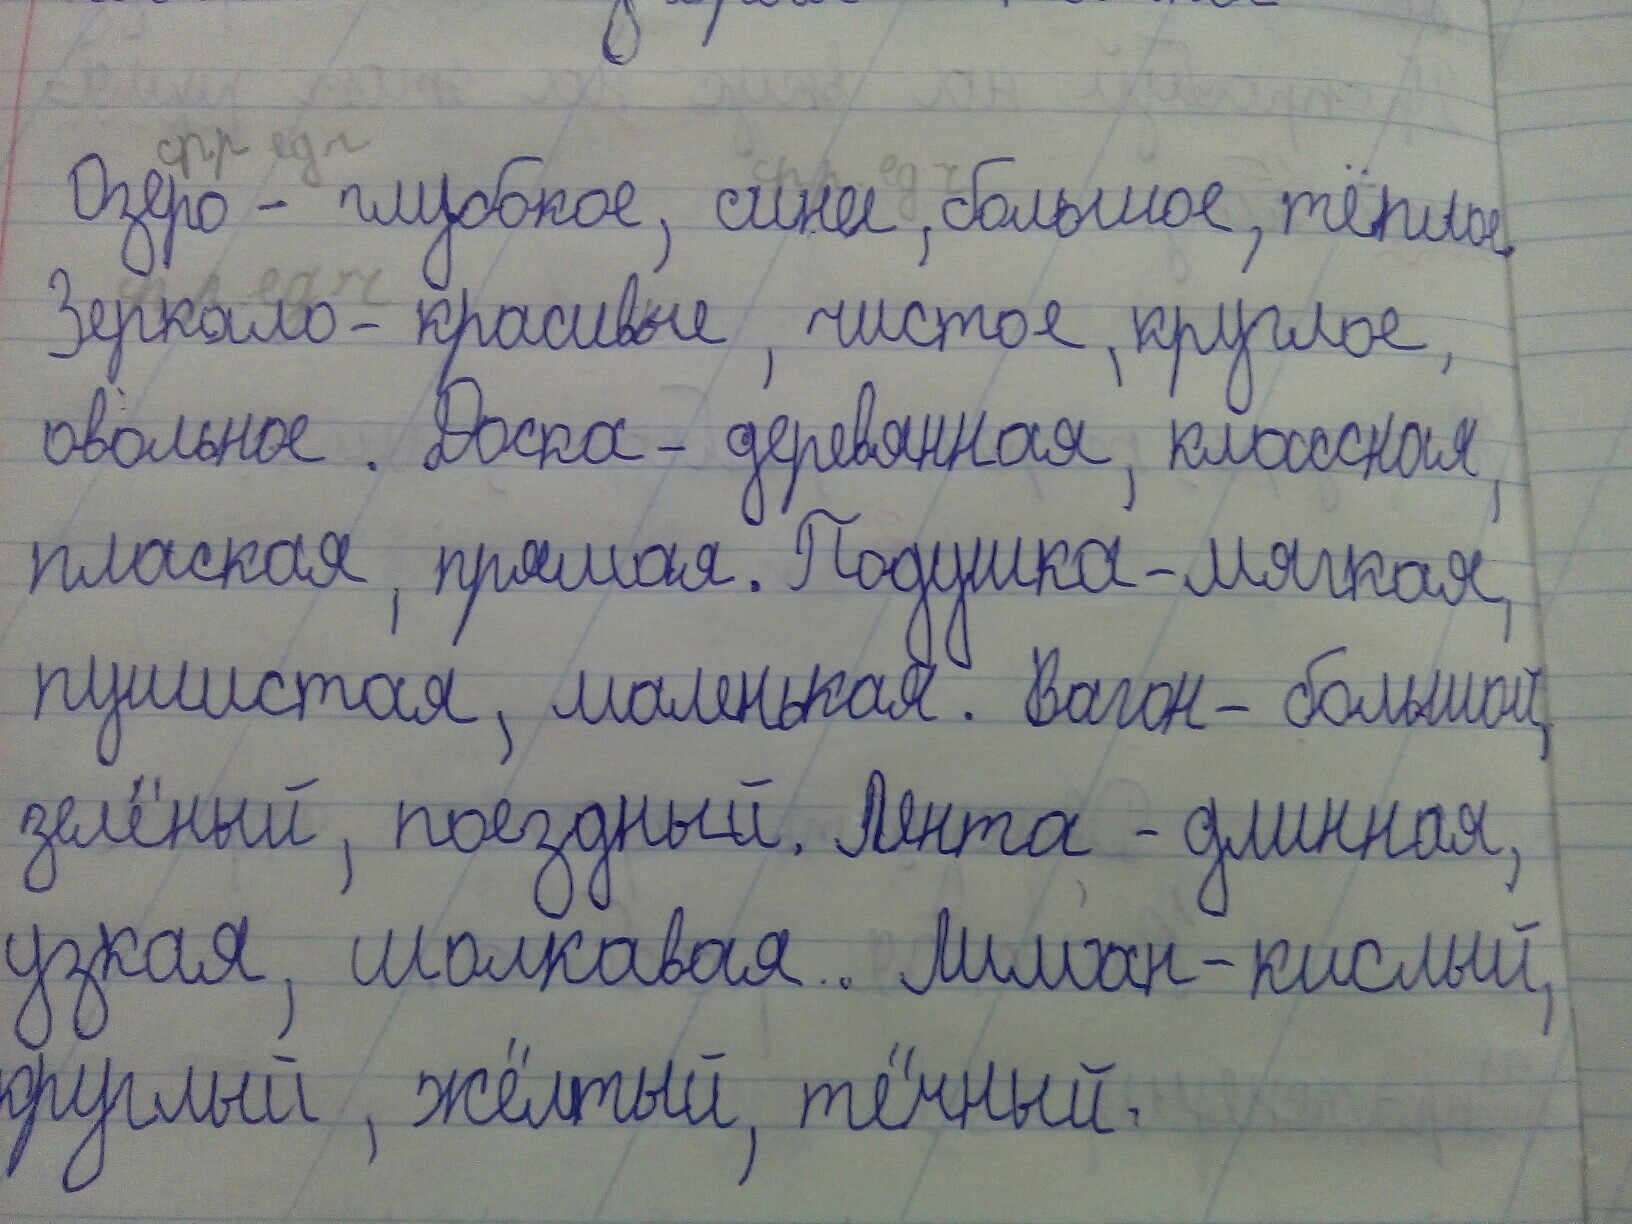 ср р ед ч
ср р ед ч
Озеро - глубокое, синее, большое, тёплое.
ср р ед ч
Зеркало - красивые, чистое, круглое,
овольное. Доска - деревянная, классная,
плаская, прямая. Подушка - мягкая,
пушистая, маленькая. Вагон - большой,
зелёный, поездный. Лента - длинная,
узкая, шолкавая.. Лимон - кислый,
круглый, жёлтый, тёчный.